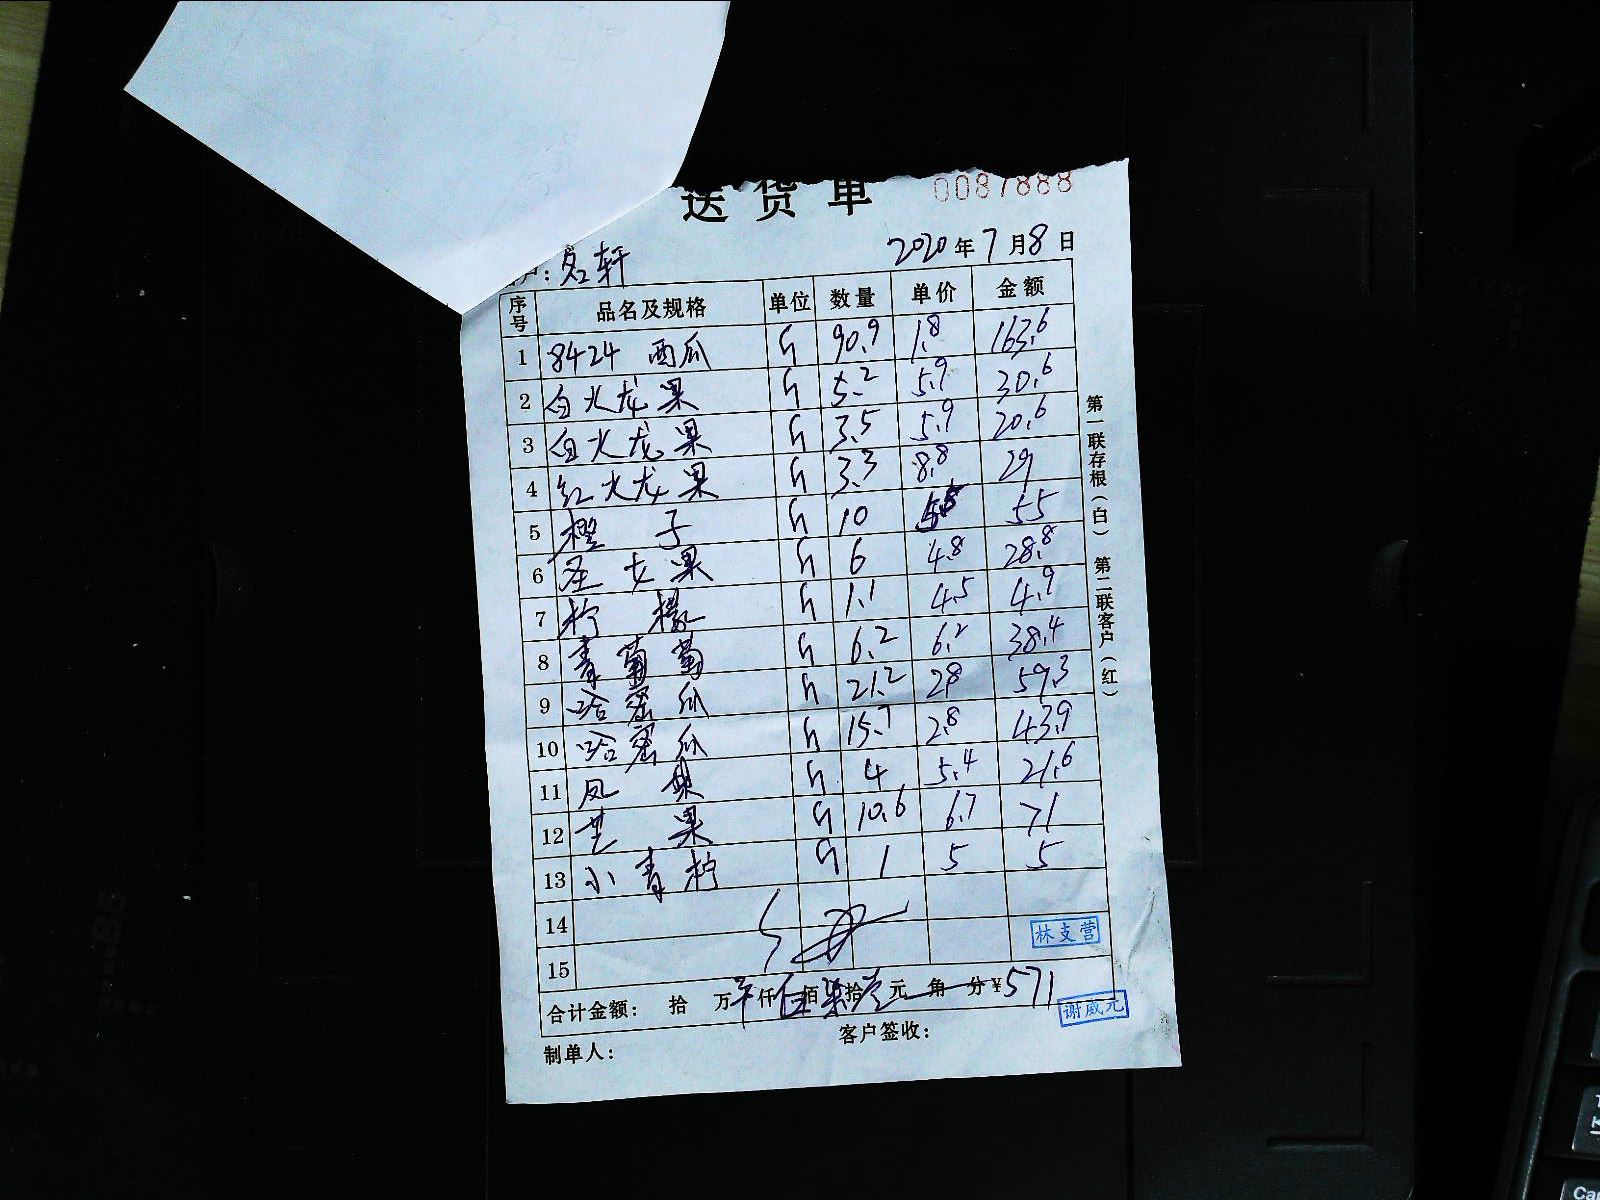 送货单 0087888
户：名轩 2020年7月8日
序号 品名及规格 单位 数量 单价 金额
1 8424 西瓜 斤 90.9 1.8 163.6
2 白火龙果 斤 5.2 5.9 30.6
3 白火龙果 斤 3.5 5.9 20.6
4 红火龙果 斤 3.3 8.8 29
5 橙子 斤 10 5.5 55
6 圣女果 斤 6 4.8 28.8
7 柠檬 斤 1.1 4.5 4.9
8 青葡萄 斤 6.2 6.2 38.4
9 哈蜜瓜 斤 21.2 2.8 59.3
10 哈蜜瓜 斤 15.7 2.8 43.9
11 凤梨 斤 4 5.4 21.6
12 芒果 斤 10.6 6.7 71
13 小青柠 斤 1 5 5
14
林支营
15
合计金额： 拾 万 仟 伍 佰 柒 拾 壹 元 角 分 ¥571
谢威元
制单人： 客户签收：
第一联存根（白） 第二联客户（红）